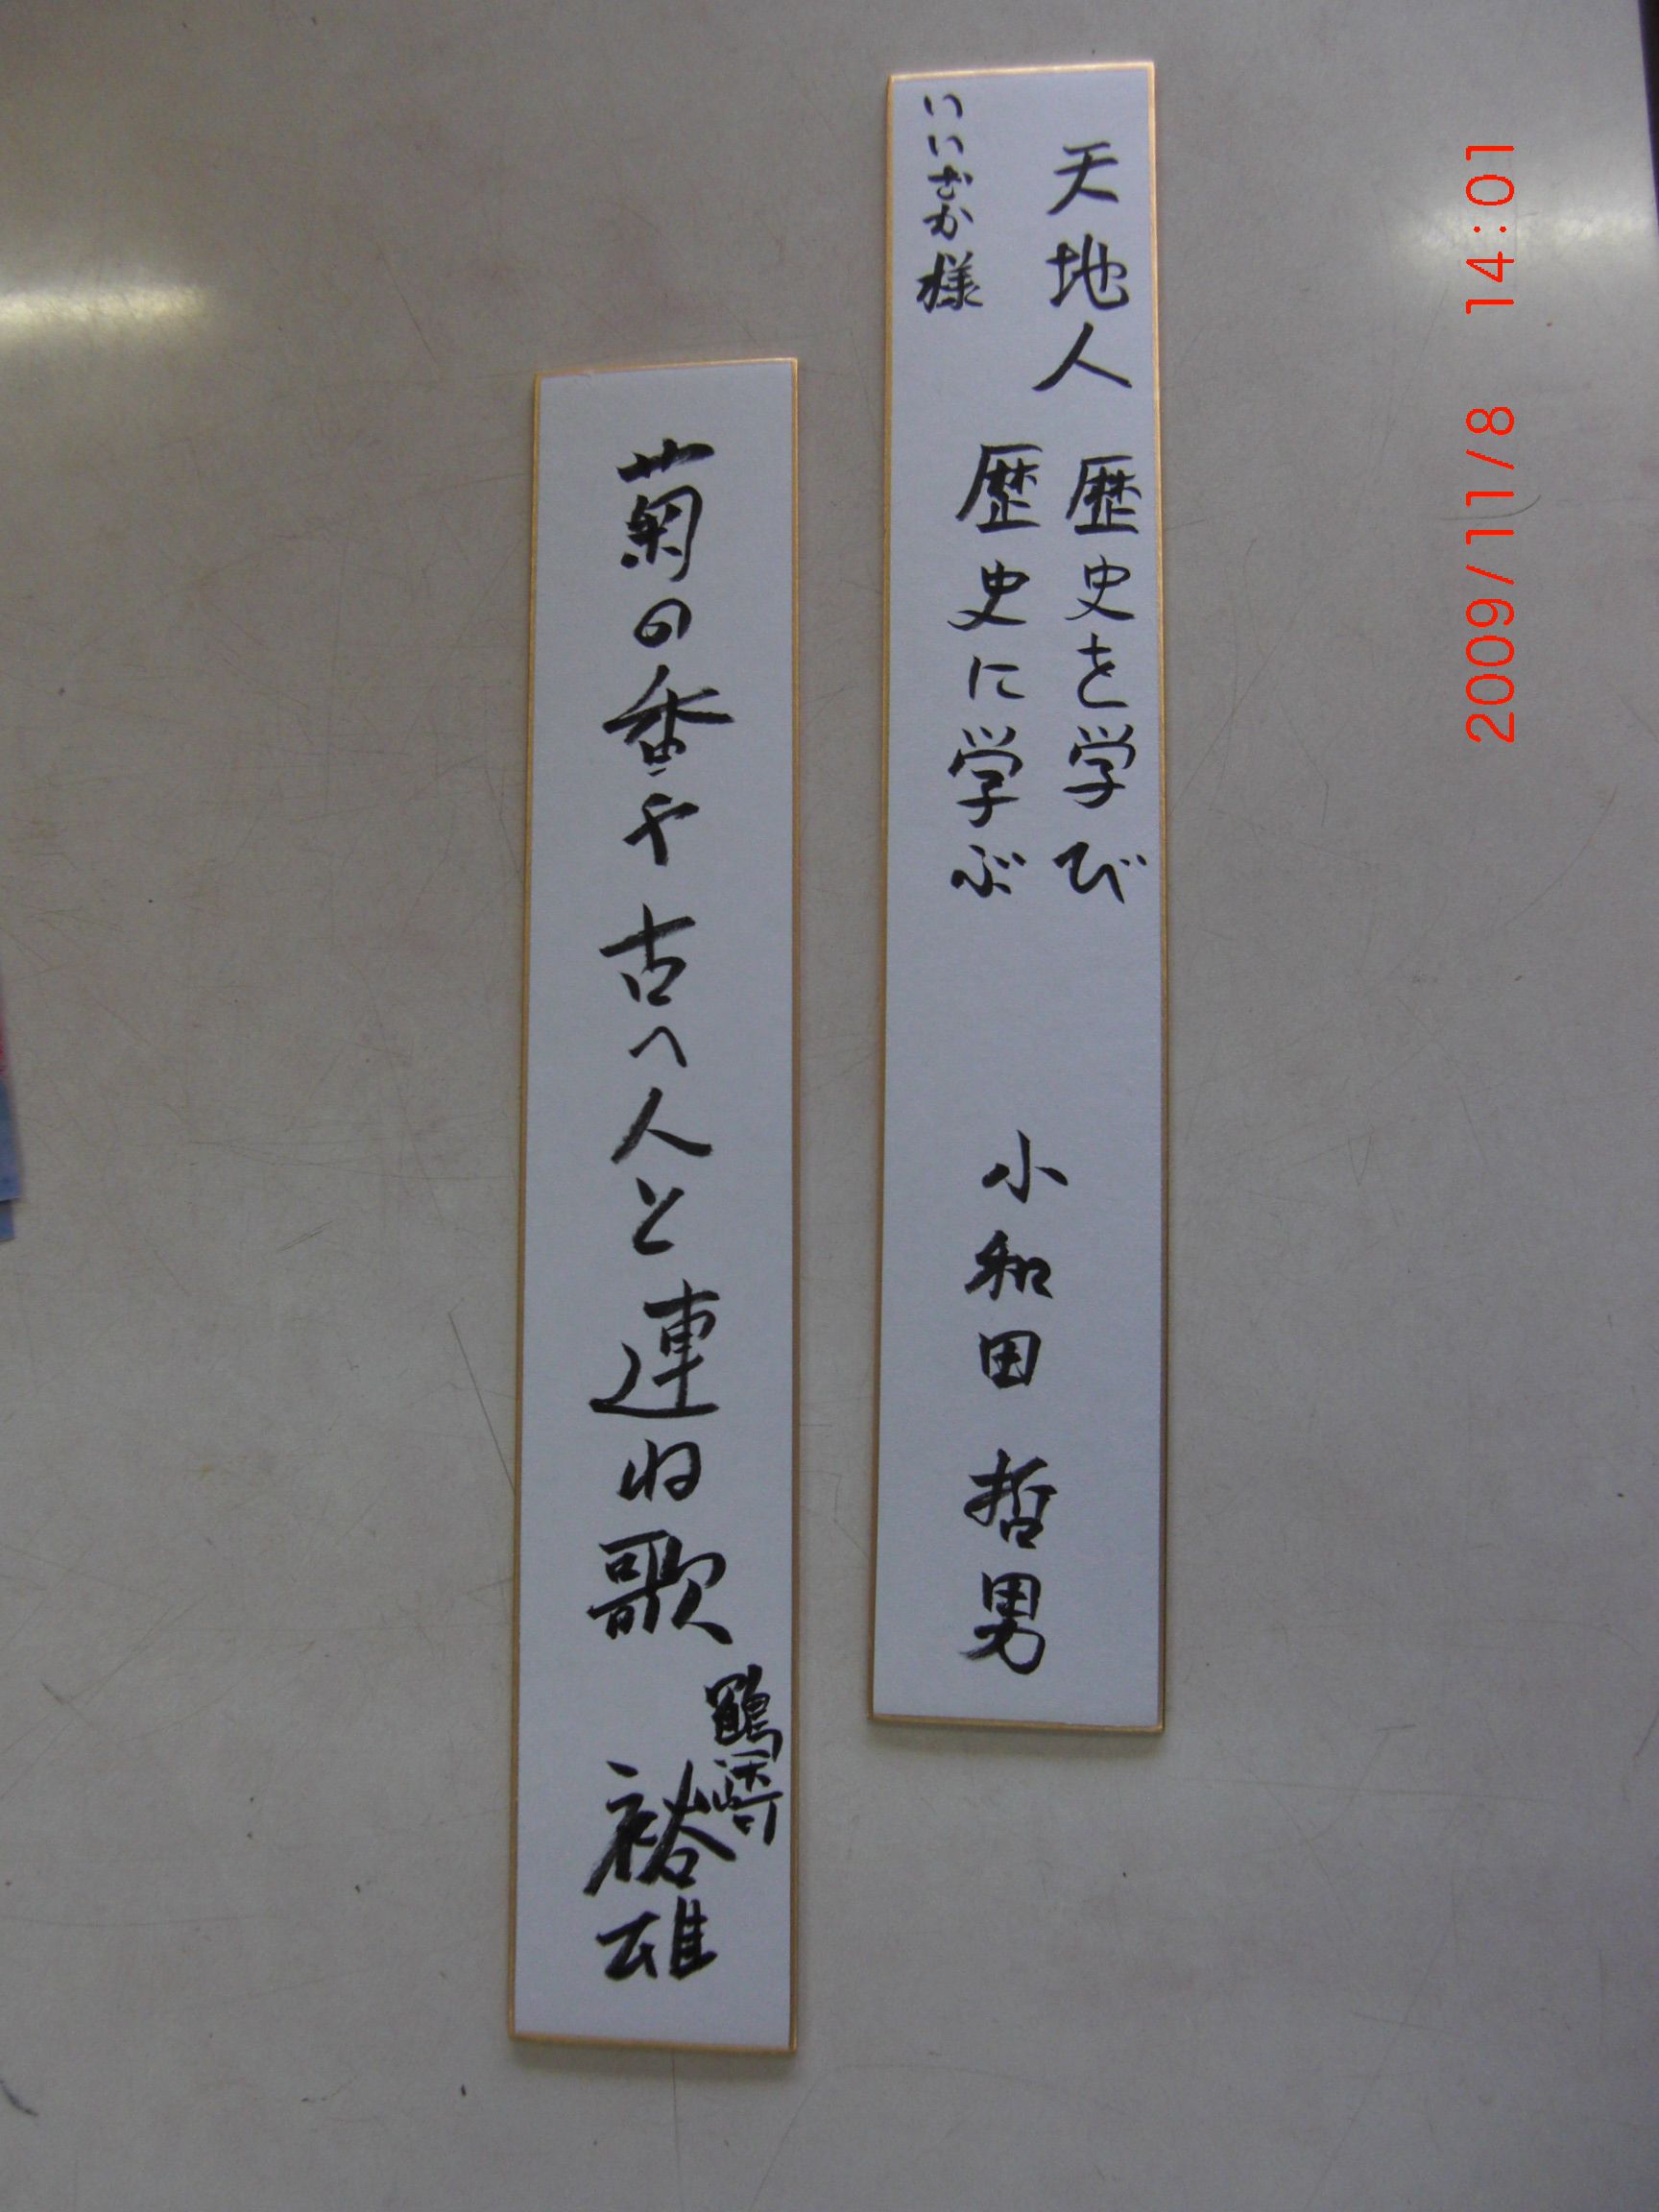 天地人
歴史を学び
歴史に学ぶ
いいむか様
小和田哲男
菊の香や古へ人と連ね歌
鶴﨑
裕雄
2009/11/8 14:01